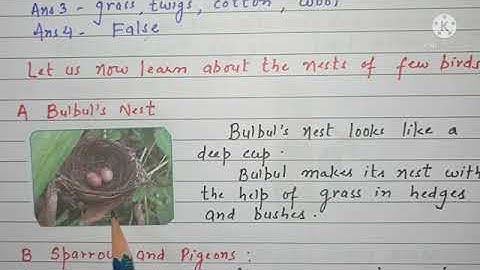 Ans 3 - grass, twigs, cotton, wool
Ans 4 - False
Let us now learn about the nests of few birds
A Bulbul's Nest
Bulbul's nest looks like a
deep cup.
Bulbul makes its nest with
the help of grass in hedges
and bushes.
B Sparrow and Pigeons: